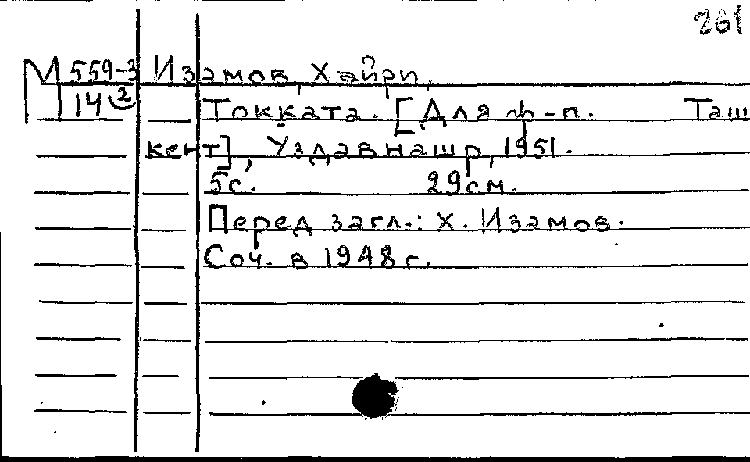 261
М 559-3 Изамов, Хайри.
14 2 Токката. [Для ф-п. Таш
кент], Уздавнашр, 1951.
5с. 29см.
Перед загл.: Х. Изамов.
Соч. в 1948г.